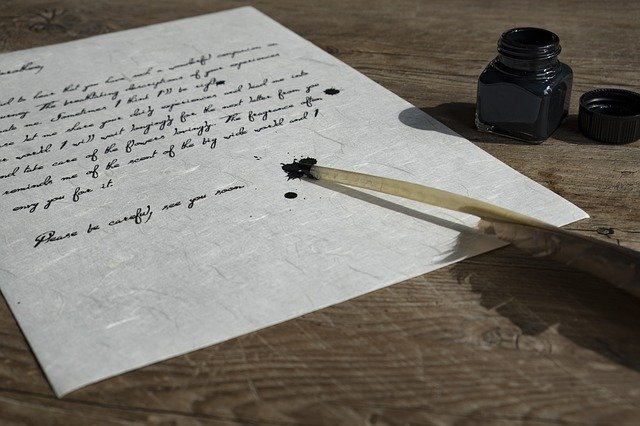 ad to hear that you have such a wonderful companion on
journey. The breathtaking descriptions of your experiences
me. Sometimes I think I'll to
let me share your daily experiences and lead me into
world. I will wait longingly for the next letter from you
and take care of the flowers lovingly. The fragrance of
reminds me of the scent of the big wide world and I
envy you for it.
Please be careful, see you soon